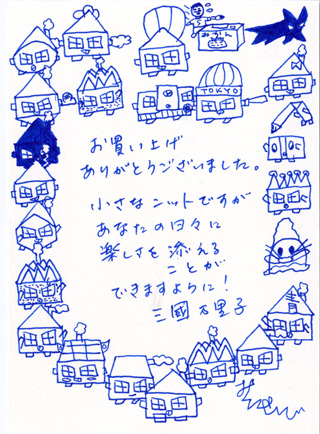 みかん
TOKYO
お買い上げ
ありがとうございました。
小さなニットですが
あなたの日々に
楽しさを添える
ことが
できますように！
三國万里子
青